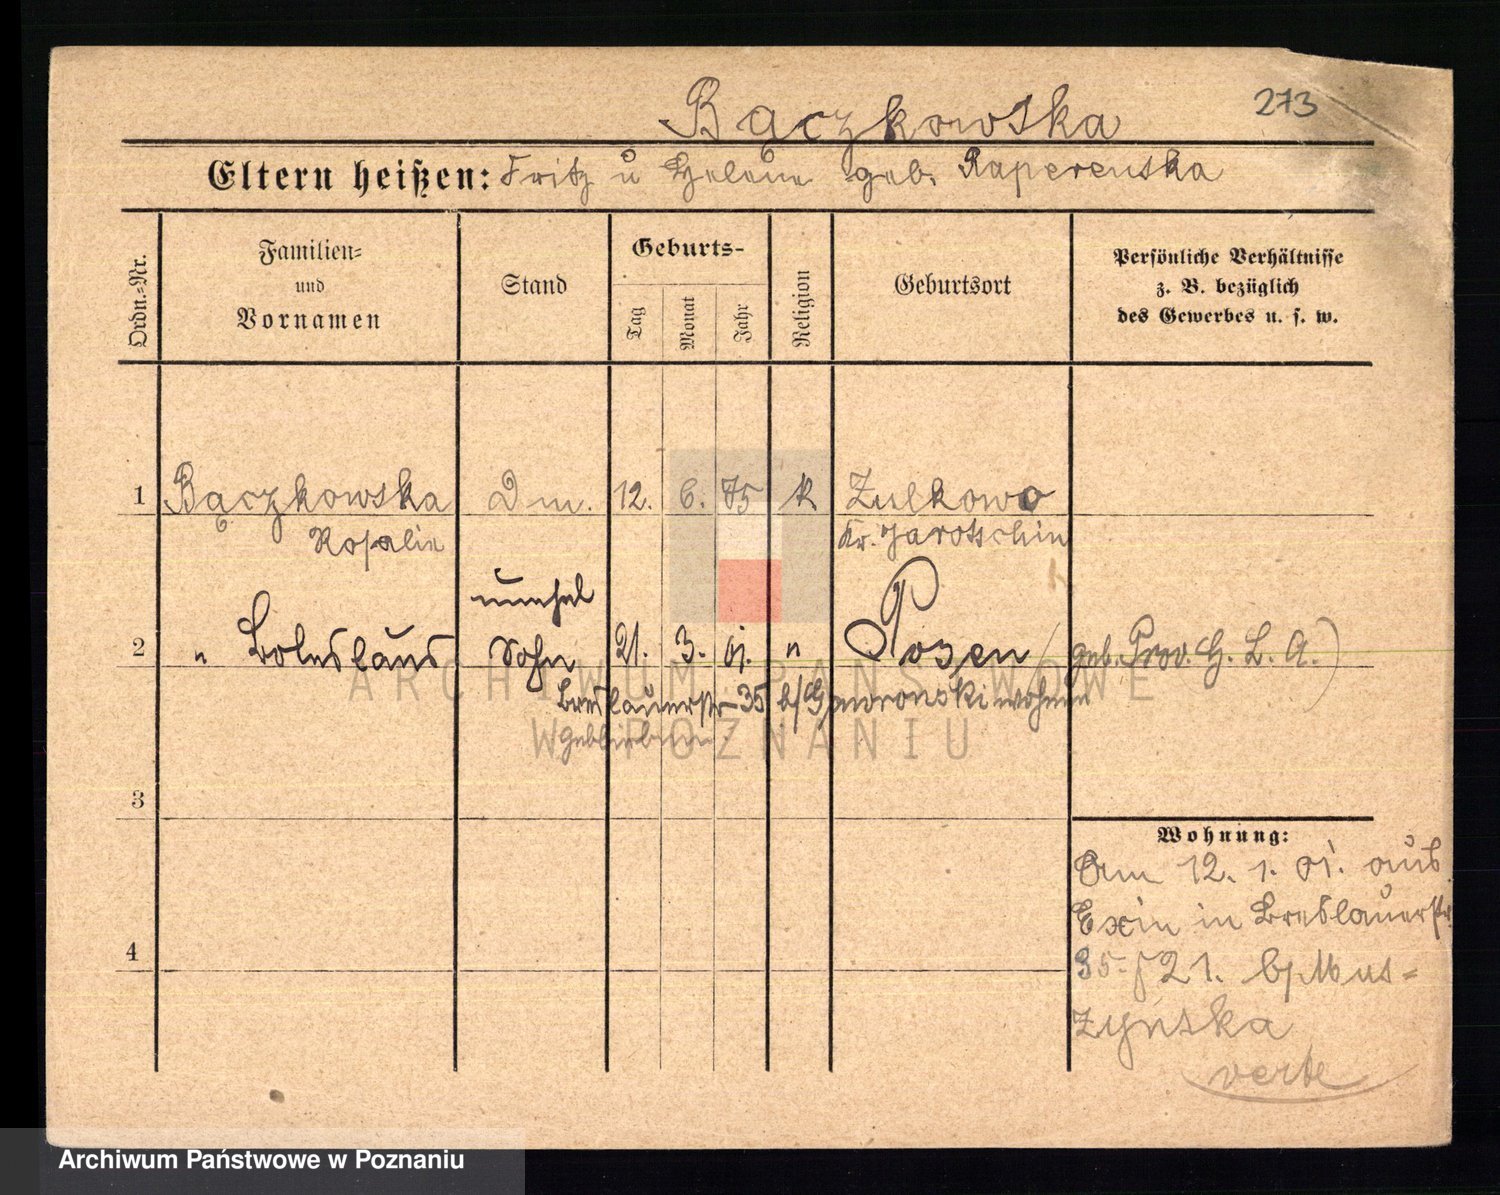 273
Bączkowska
Eltern heißen: Fritz u Helene geb. Raperenska
Ordn.-Nr.
Familien- und Vornamen
Stand
Geburts-
Tag
Monat
Jahr
Religion
Geburtsort
Persönliche Verhältnisse
z. B. bezüglich
des Gewerbes u. s. w.
1 Bączkowska Dm. 12. 6. 75 k Zulkowo
Rosalie Kr. Jarotschin
unehel
2 " Boleslaus Sohn 21. 3. 01. " Posen (geb. Prov. H. L. A.)
Breslauerstr 35 b/Gaworonski wohnen
geblieben
3
Wohnung:
Am 12. 1. 01. aus
Exin in Breslauerstr
4
35- 21. b/Mus=
zyńska
verte
ARCHIWUM PAŃSTWOWE
W POZNANIU
Archiwum Państwowe w Poznaniu